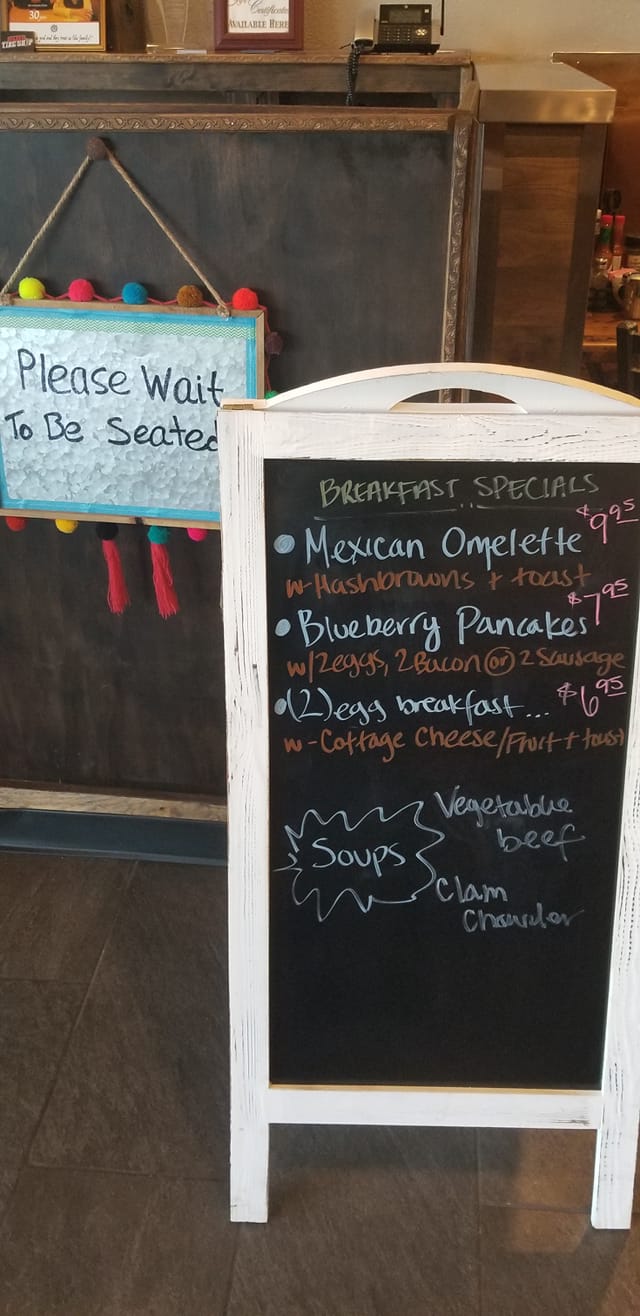 30
Certificates
AVAILABLE HERE
Please Wait
To Be Seated
BREAKFAST SPECIALS
• Mexican Omelette $9.95
w-Hashbrowns + toast
• Blueberry Pancakes $7.95
w/2eggs, 2Bacon or 2 Sausage
• (2) egg breakfast... $6.95
w-Cottage Cheese/Fruit + toast
Soups
Vegetable
beef
Clam
Chowder